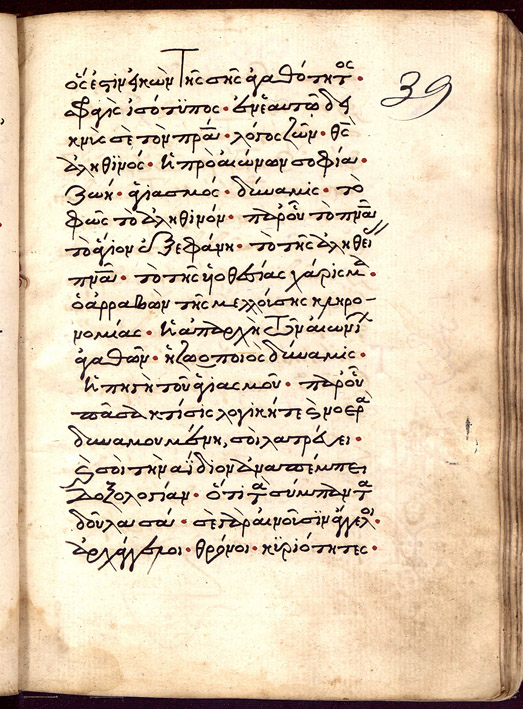 ὅς ἐστιν εἰκὼν τῆς σῆς ἀγαθότητος·
39
σφραγὶς ἰσότυπος· ἐν ἑαυτῷ δει
κνὺς σὲ τὸν πρα· λόγος ζῶν· θς
ἀληθινός· ἡ πρὸ αἰώνων σοφία·
ζωή· ἁγιασμός· δύναμις· τὸ
φῶς τὸ ἀληθινόν· παρ' οὗ τὸ πνα
τὸ ἅγιον ἐξεφάνη· τὸ τῆς ἀληθείας
πνα· τὸ τῆς υἱοθεσίας χάρισμα·
ὁ ἀρραβὼν τῆς μελλούσης κληρο-
νομίας· ἡ ἀπαρχὴ τῶν αἰωνίων
ἀγαθῶν· ἡ ζωοποιὸς δύναμις·
ἡ πηγὴ τοῦ ἁγιασμοῦ· παρ' οὗ
πᾶσα κτίσις λογικήτε καὶ νοερὰ
δυναμουμένη, σοὶ λατρεύει·
καὶ σοὶ τὴν ἀΐδιον ἀναπέμπει
δοξολογίαν· ὅτι τὰ σύμπαντα
δοῦλα σά· σὲ γὰρ αἰνοῦσιν ἄγγελοι·
ἀρχάγγελοι· θρόνοι· κυριότητες·